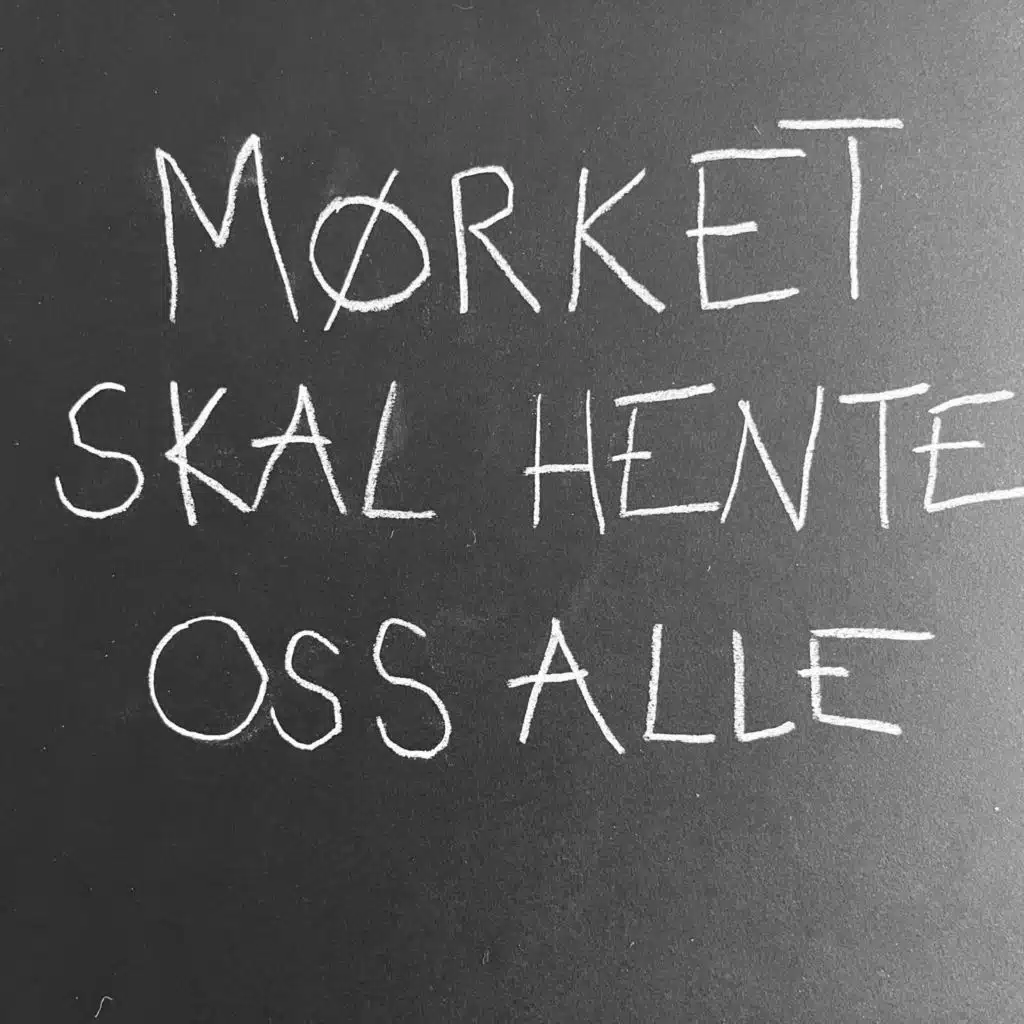 MØRKET
SKAL HENTE
OSS ALLE